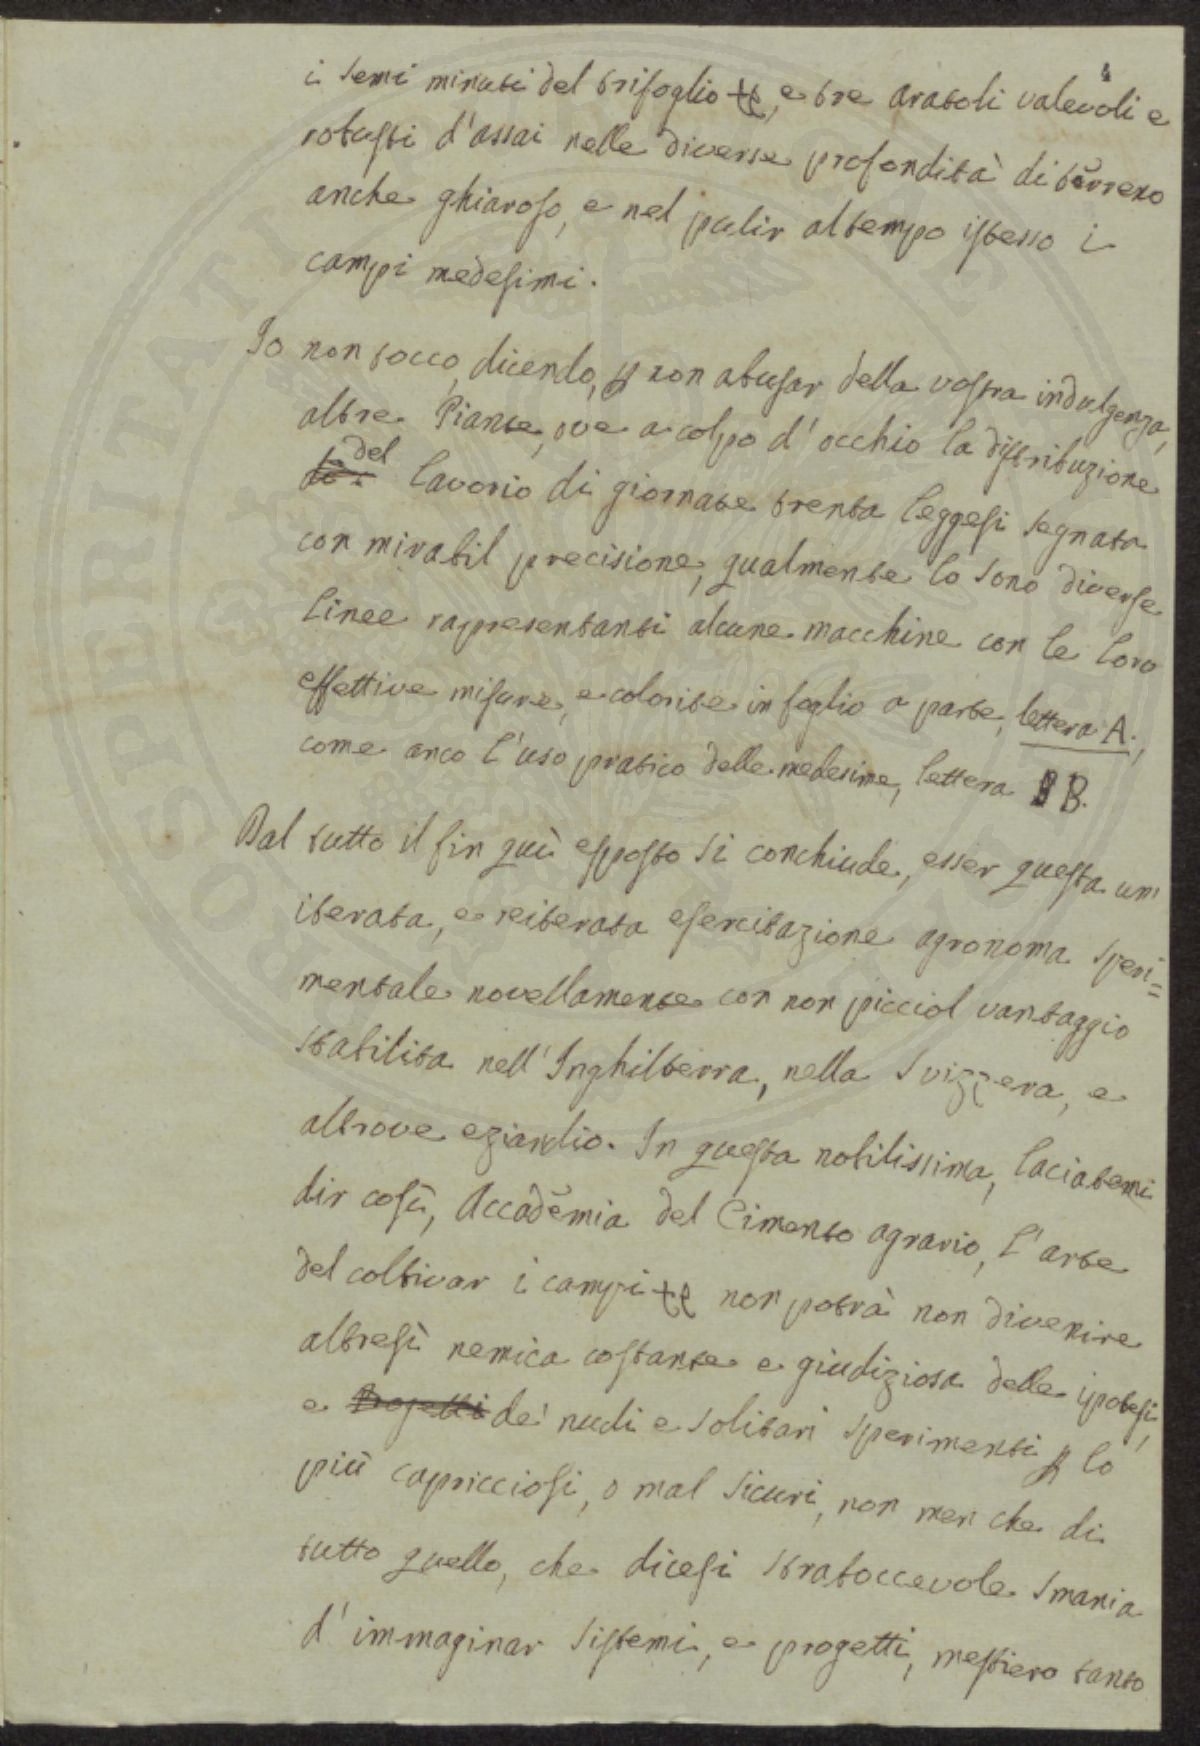 i semi minuti del trifoglio &c, e tre aratoli valevoli e
robusti d'assai nelle diverse profondità di terreno
anche ghiaroso, e nel pulir al tempo istesso i
campi medesimi.
Io non tocco, dicendo, p non abusar della vostra indulgenza,
altre Piante, ove a colpo d'occhio la distribuzione
del lavorio di giornate trenta leggesi segnata
con mirabil precisione, qualmente lo sono diverse
linee rappresentanti alcune macchine con le loro
effettive misure, e colorite in foglio a parte, lettera A.,
come anco l'uso pratico delle medesime, lettera B.
Dal tutto il fin quì esposto si conchiude, esser questa un'
iterata, e reiterata esercitazione agronoma speri=
mentale novellamente con non picciol vantaggio
stabilita nell'Inghilterra, nella Svizzera, e
altrove eziandio. In questa nobilissima, laciatemi
dir così, Accademia del Cimento agrario, l'arte
del coltivar i campi &c non potrà non divenire
altresì nemica costante e giudiziosa delle ipotesi,
e Progetti de' nudi e solitari sperimenti p lo
più capricciosi, o mal sicuri, non men che di
tutto quello, che dicesi straboccevole smania
d'immaginar sistemi, e progetti, mestiero tanto